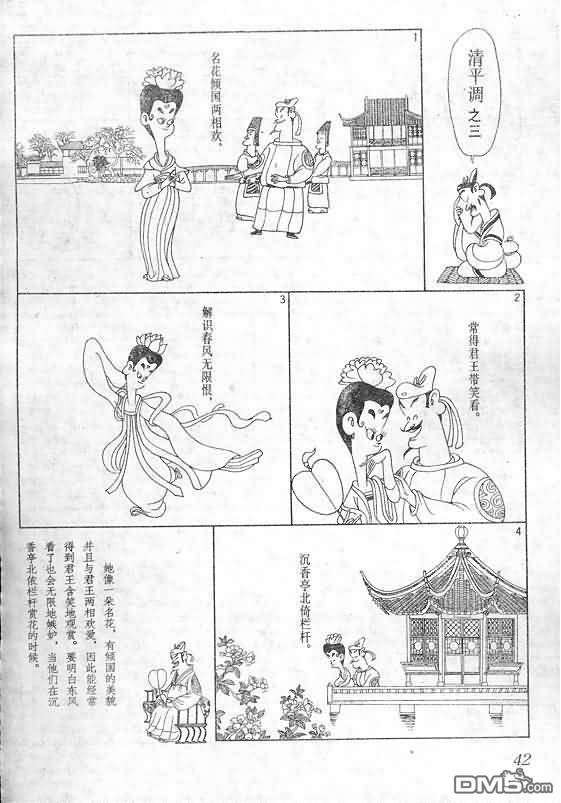 清平调 之三
1
名花倾国两相欢、
2
常得君王带笑看。
3
解识春风无限恨，
4
沉香亭北倚栏杆。
她像一朵名花，有倾国的美貌
并且与君王两相欢爱，因此能经常
得到君王含笑地观赏。要明白东风
看了也会无限地嫉妒，当他们在沉
香亭北依栏杆赏花的时候。
42
DM5.com